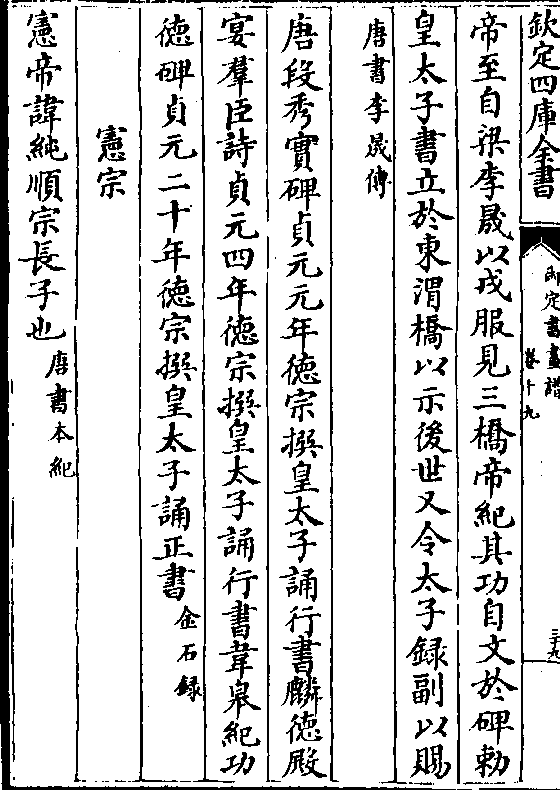 欽定四庫全書
御定書畫譜
卷十九
三十九
帝至自梁李晟以戎服見三橋帝紀其功自文於碑勅
皇太子書立於東渭橋以示後世又令太子録副以賜
唐書李晟傳
唐段秀實碑貞元元年德宗撰皇太子誦行書麟德殿
宴羣臣詩貞元四年德宗撰皇太子誦行書韋皋紀功
德碑貞元二十年德宗撰皇太子誦正書金石録
憲宗
憲帝諱純順宗長子也唐書本紀